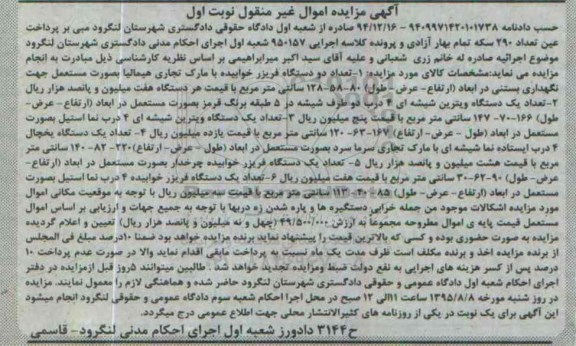 آگهی مزایده اموال غیر منقول نوبت اول
حسب دادنامه ۹۴۰۹۹۷۱۴۲۰۱۰۱۷۳۸ - ۹۴/۱۲/۱۶ صادره از شعبه اول دادگاه حقوقی دادگستری شهرستان لنگرود مبی بر پرداخت
عین تعداد ۲۹۰ سکه تمام بهار آزادی و پرونده کلاسه اجرایی ۹۵۰۱۵۷ شعبه اول اجرای احکام مدنی دادگستری شهرستان لنگرود
موضوع اجرائیه صادره له خانم زری شعبانی و علیه آقای سید اکبر میرابراهیمی بر اساس نظریه کارشناسی ذیل مبادرت به انجام
مزایده می نماید:مشخصات کالای مورد مزایده: ۱-تعداد دو دستگاه فریزر خوابیده با مارک تجاری هیمالیا بصورت مستعمل جهت
نگهداری بستنی در ابعاد (ارتفاع - عرض- طول) ۸۰-۵۸-۱۲۸ سانتی متر مربع با قیمت هر دستگاه هفت میلیون و پانصد هزار ریال
۲-تعداد یک دستگاه ویترین شیشه ای ۴ درب دو طرف شیشه در ۵ طبقه برنگ قرمز بصورت مستعمل در ابعاد (ارتفاع - عرض-
طول) ۱۶۶-۷۰- ۱۴۷ سانتی متر مربع با قیمت پنج میلیون ریال ۳-تعداد یک دستگاه ویترین شیشه ای ۴ درب نما استیل بصورت
مستعمل در ابعاد (طول - عرض - ارتفاع) ۱۶۷-۶۳- ۱۲۰ سانتی متر مربع با قیمت یازده میلیون ریال ۴- تعداد یک دستگاه یخچال
۴ درب ایستاده نما شیشه ای با مارک تجاری سرما سرد بصورت مستعمل در ابعاد (طول - عرض- ارتفاع)۲۲۰- ۸۲- ۱۴۰ سانتی متر
مربع با قیمت هشت میلیون و پانصد هزار ریال ۵- تعداد یک دستگاه فریزر خوابیده چرخدار بصورت مستعمل در ابعاد (ارتفاع-
عرض- طول) ۹۰-۶۲-۳۰ سانتی متر مربع با قیمت هفت میلیون ریال ۶-تعداد یک دستگاه فریزر خوابیده ۴ درب نما استیل بصورت
مستعمل در ابعاد (ارتفاع- عرض- طول) ۸۵-۴۰- ۱۱۳ سانتی متر مربع با قیمت سه میلیون ریال با توجه به موقعیت مکانی اموال
مورد مزایده اشکالات موجود من جمله خرابی دستگیره ها و پاره شدن زه دربها با توجه به جمیع جهات و ارزیابی بر اساس اموال
مستعمل قیمت پایه ی اموال مطروحه مجموعاً به ارزش ۴۹/۵۰۰/۰۰۰ (چهل و نه میلیون و پانصد هزار ریال) تعیین و اعلام گردیده
مزایده به صورت حضوری بوده و کسی که بالاترین قیمت را پیشنهاد نماید برنده مزایده خواهد بود ضمنا ۱۰درصد مبلغ فی المجلس
از برنده مزایده اخذ و برنده مکلف است ظرف مدت یک ماه نسبت به پرداخت مابقی اقدام نماید والا در صورت عدم پرداخت ۱۰
درصد پس از کسر هزینه های اجرایی به نفع دولت ضبط ومزایده تجدید خواهد شد . طالبین میتوانند ۵روز قبل ازمزایده در دفتر
اجرای احکام شعبه اول دادگاه عمومی و حقوقی دادگستری شهرستان لنگرود حاضر شده و هماهنگی لازم را معمول نمایند. مزایده
در روز شنبه مورخه ۱۳۹۵/۸/۸ ساعت ۱۱الی ۱۲ صبح در محل اجرا احکام شعبه سوم دادگاه عمومی و حقوقی لنگرود انجام میشود
این آگهی برای یک نوبت در یکی از روزنامه های کثیرالانتشار محلی جهت اطلاع عمومی درج میگردد.
ح۳۱۴۴ دادورز شعبه اول اجرای احکام مدنی لنگرود - قاسمی